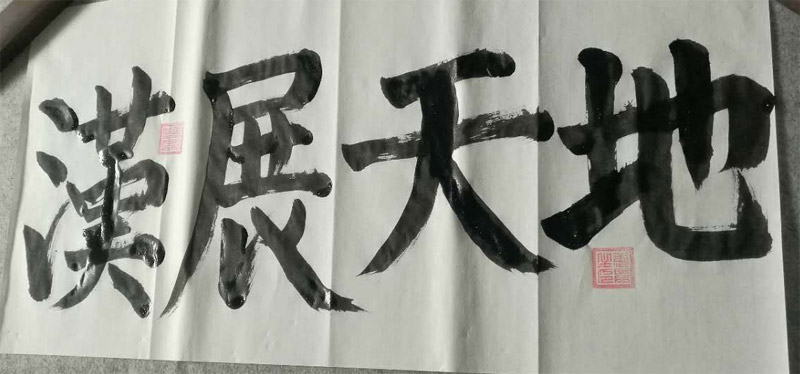 漢展天地